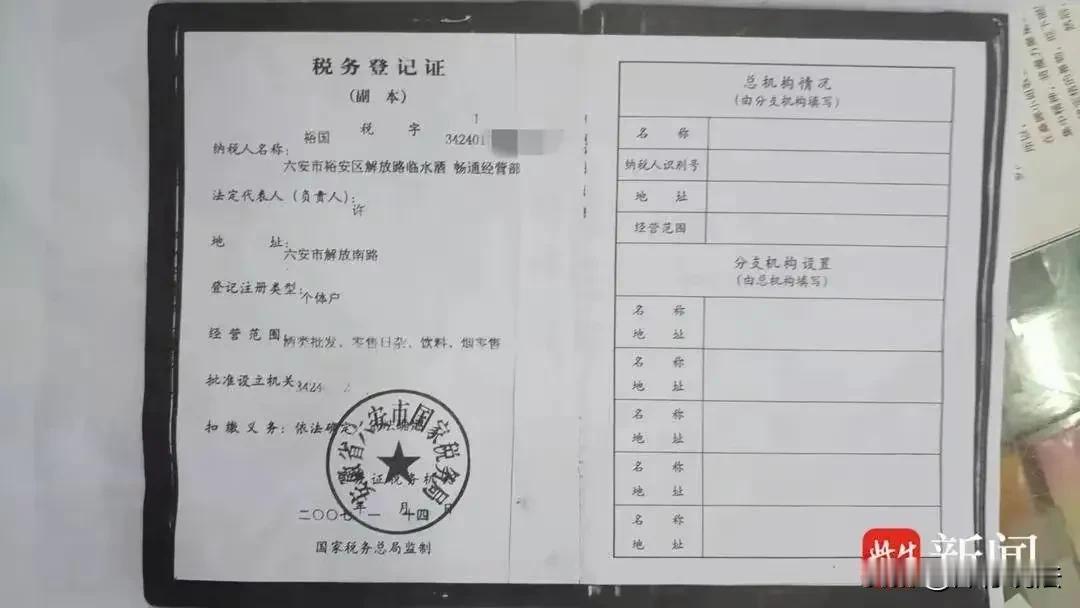 税务登记证
(副 本)
裕国 税 字 342401
纳税人名称:
六安市裕安区解放路临水酒 畅通经营部
法定代表人(负责人):
许
地 址:
六安市解放南路
登记注册类型:
个体户
经营范围 酒类批发、零售日杂、饮料、烟零售
批准设立机关 3424
扣缴义务:依法确定
安徽省六安市国家税务局
发证税务机
二〇〇七年 一 月 十四 日
国家税务总局监制
总机构情况
(由分支机构填写)
名 称
纳税人识别号
地 址
经营范围
分支机构设置
(由总机构填写)
名 称
地 址
名 称
地 址
名 称
地 址
名 称
地 址
名 称
地 址
新闻